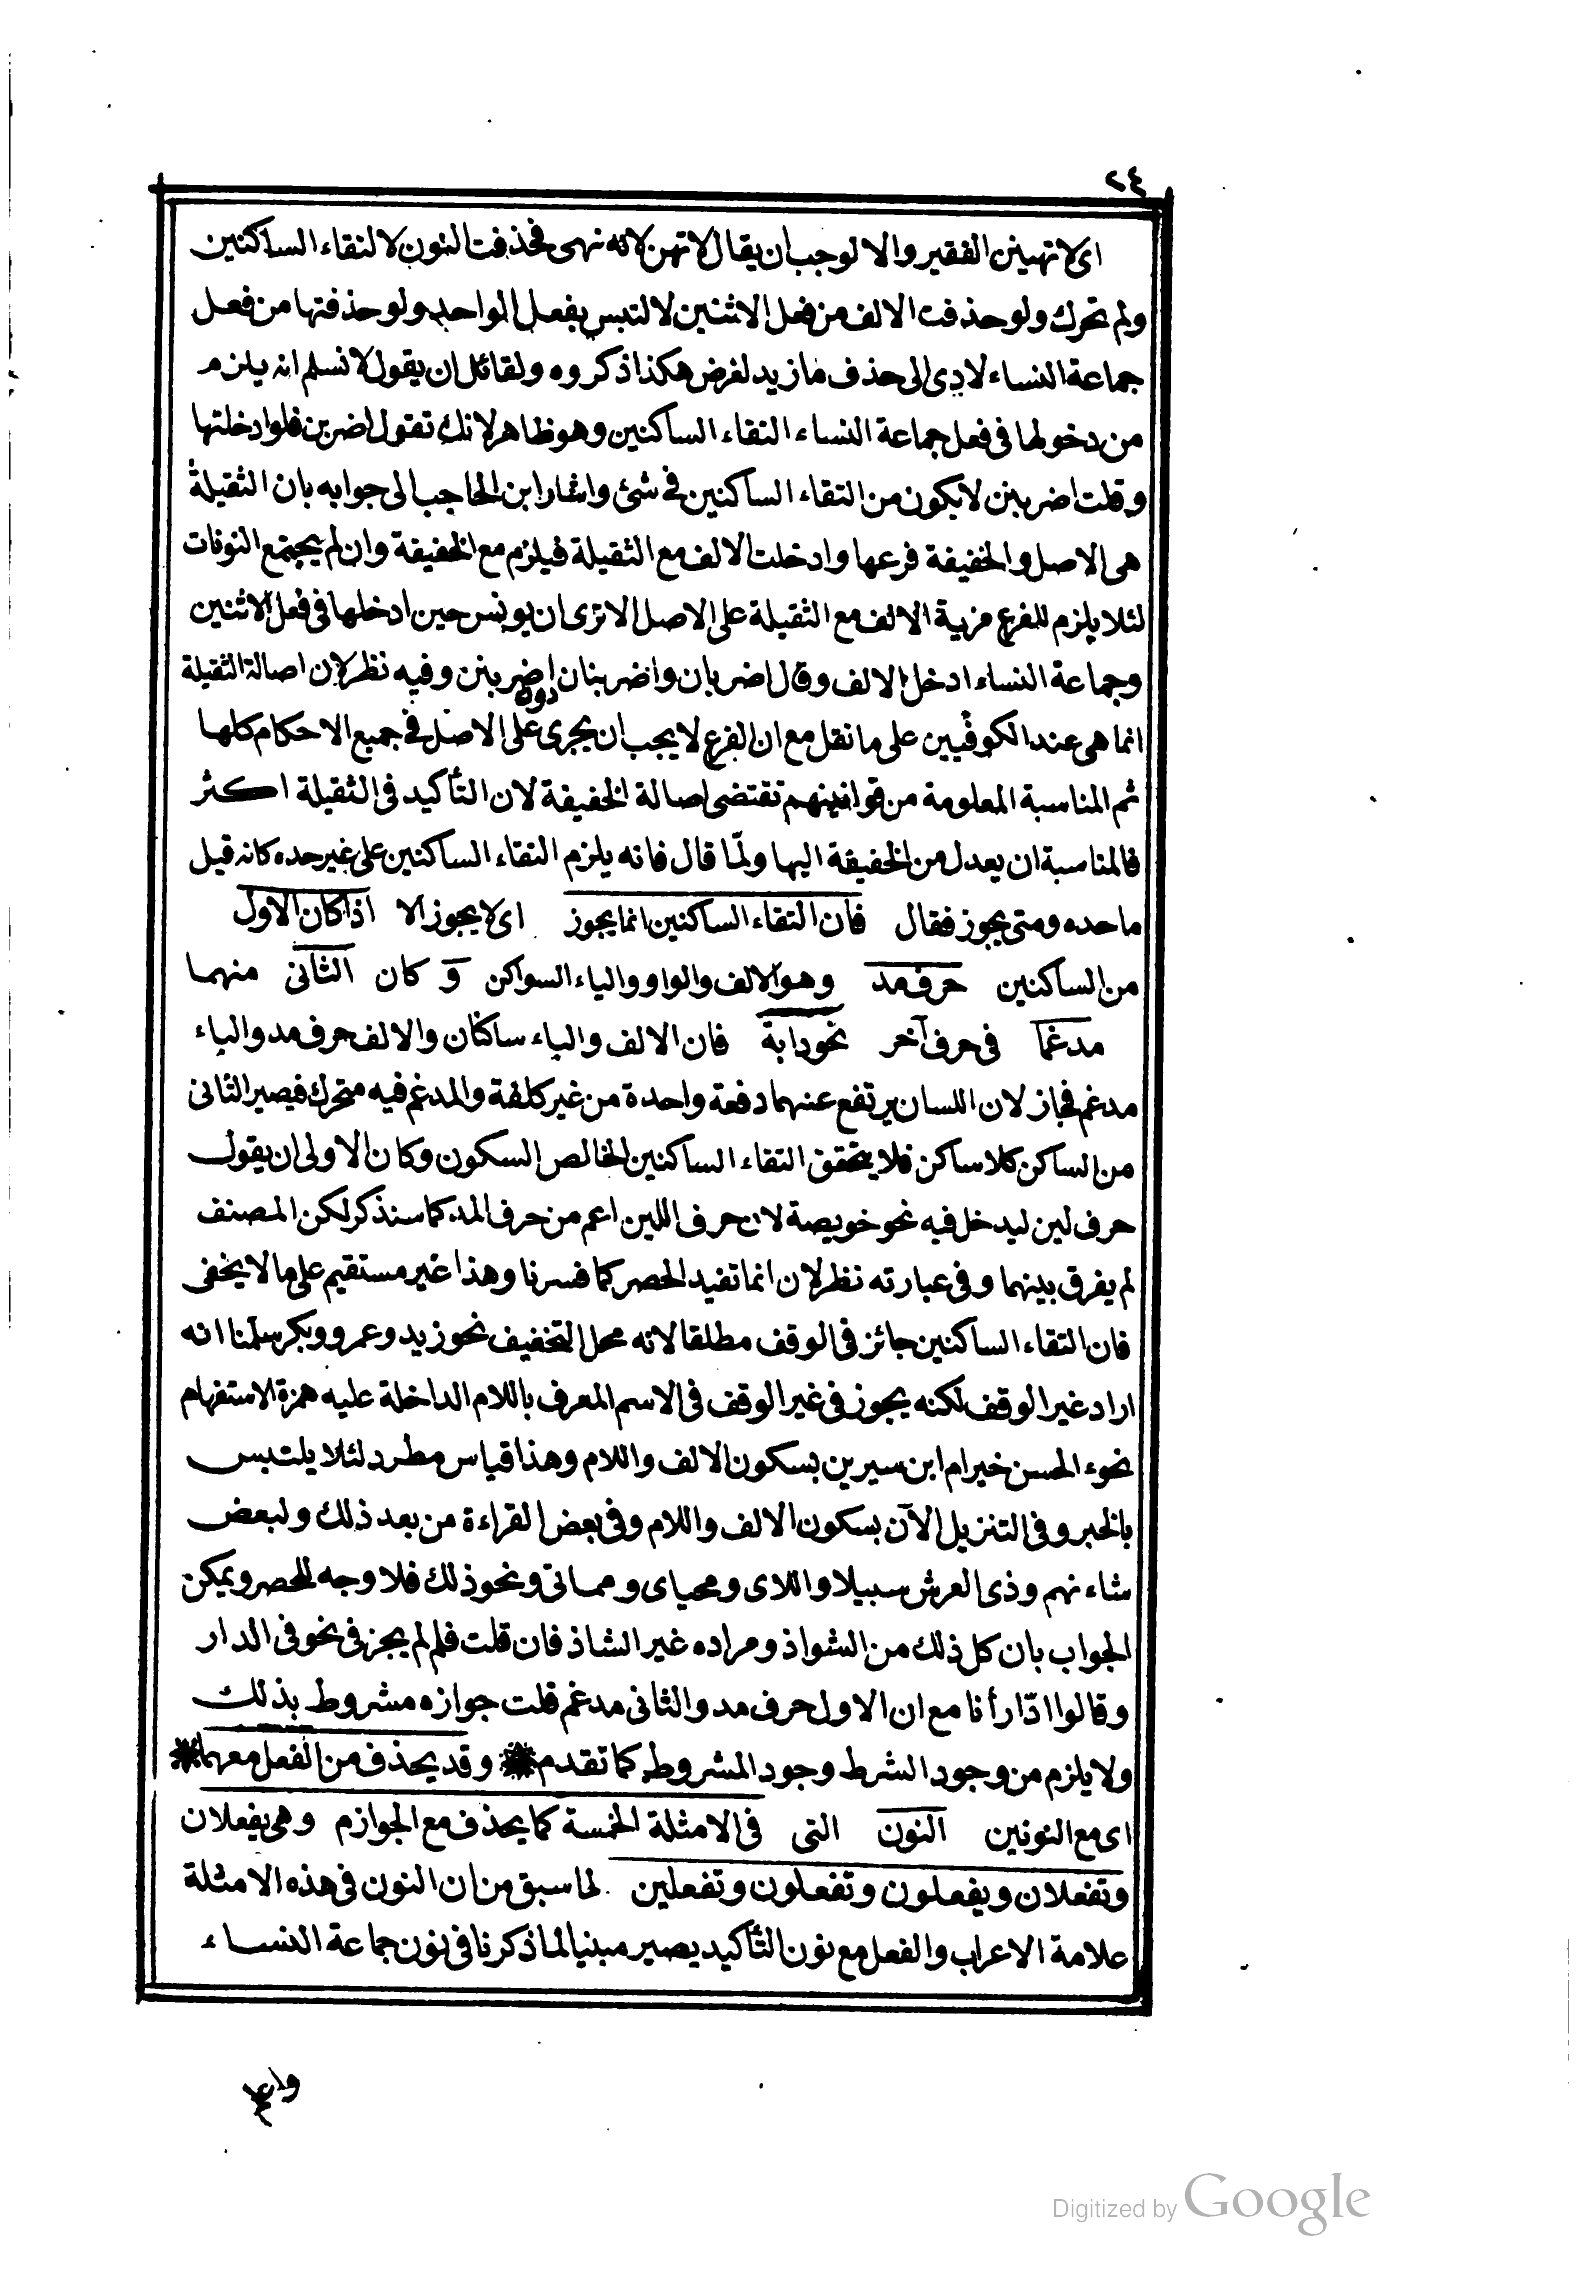 ٢٤
اى لا تهينن الفقير والا لوجب ان يقال لا تهن لانه نهى فحذفت النون لالتقاء الساكنين
ولم تحرك ولو حذفت الالف من فعل الاثنين لالتبس بفعل الواحد ولو حذفتها من فعل
جماعة النساء لادى الى حذف ما زيد لغرض هكذا ذكروه ولقائل ان يقول لا نسلم انه يلزم
من دخولها فى فعل جماعة النساء التقاء الساكنين وهو ظاهر لانك تقول اضربن فلو ادخلتها
وقلت اضربنن لا يكون من التقاء الساكنين فى شئ واشار ابن الحاجب الى جوابه بان الثقيلة
هى الاصل والخفيفة فرعها وادخلت الالف مع الثقيلة فيلزم مع الخفيفة وان لم يجتمع النونات
لئلا يلزم للفرع مزية الالف مع الثقيلة على الاصل الا ترى ان يونس حين ادخلها فى فعل الاثنين
وجماعة النساء ادخل الالف وقال اضربان واضربنان دون اضربنن وفيه نظر لان اصالة الثقيلة
انما هى عند الكوفيين على ما نقل مع ان الفرع لا يجب ان يجرى على الاصل فى جميع الاحكام كلها
ثم المناسبة المعلومة من قوانينهم تقتضى اصالة الخفيفة لان التأكيد فى الثقيلة اكثر
فالمناسبة ان يعدل من الخفيفة اليها ولمّا قال فانه يلزم التقاء الساكنين على غير حده كانه قيل
ما حده ومتى يجوز فقال فان التقاء الساكنين انما يجوز اى لا يجوز الا اذا كان الاول
من الساكنين حرف مد وهو الالف والواو والياء السواكن و كان الثانى منهما
مدغما فى حرف آخر نحو دابة فان الالف والباء ساكنان والالف حرف مد والباء
مدغم فجاز لان اللسان يرتفع عنهما دفعة واحدة من غير كلفة والمدغم فيه متحرك فيصير الثانى
من الساكن كلا ساكن فلا يتحقق التقاء الساكنين الخالص السكون وكان الاولى ان يقول
حرف لين ليدخل فيه نحو خويصة لان حرف اللين اعم من حرف المد كما سنذكر لكن المصنف
لم يفرق بينهما وفى عبارته نظر لان انما تفيد الحصر كما فسرنا وهذا غير مستقيم على ما لا يخفى
فان التقاء الساكنين جائز فى الوقف مطلقا لانه محل التخفيف نحو زيد وعمرو وبكر سلّمنا انه
اراد غير الوقف لكنه يجوز فى غير الوقف فى الاسم المعرف باللام الداخلة عليه همزة الاستفهام
نحو ء الحسن خير ام ابن سيرين بسكون الالف واللام وهذا قياس مطرد لئلا يلتبس
بالخبر وفى التنزيل الآن بسكون الالف واللام وفى بعض القراءة من بعد ذلك ولبعض
شاء نهم وذى العرش سبيلا واللاى ومحياى ومماتى ونحو ذلك فلا وجه للحصر ويمكن
الجواب بان كل ذلك من الشواذ ومراده غير الشاذ فان قلت فلم لم يجز فى نحو فى الدار
وقالوا ادّارأنا مع ان الاول حرف مد والثانى مدغم قلت جوازه مشروط بذلك
ولا يلزم من وجود الشرط وجود المشروط كما تقدم * وقد يحذف من الفعل معهما *
اى مع النونين النون التى فى الامثلة الخمسة كما يحذف مع الجوازم وهى يفعلان
وتفعلان ويفعلون وتفعلون وتفعلين لما سبق من ان النون فى هذه الامثلة
علامة الاعراب والفعل مع نون التأكيد يصير مبنيا لما ذكرنا فى نون جماعة النساء
Digitized by Google